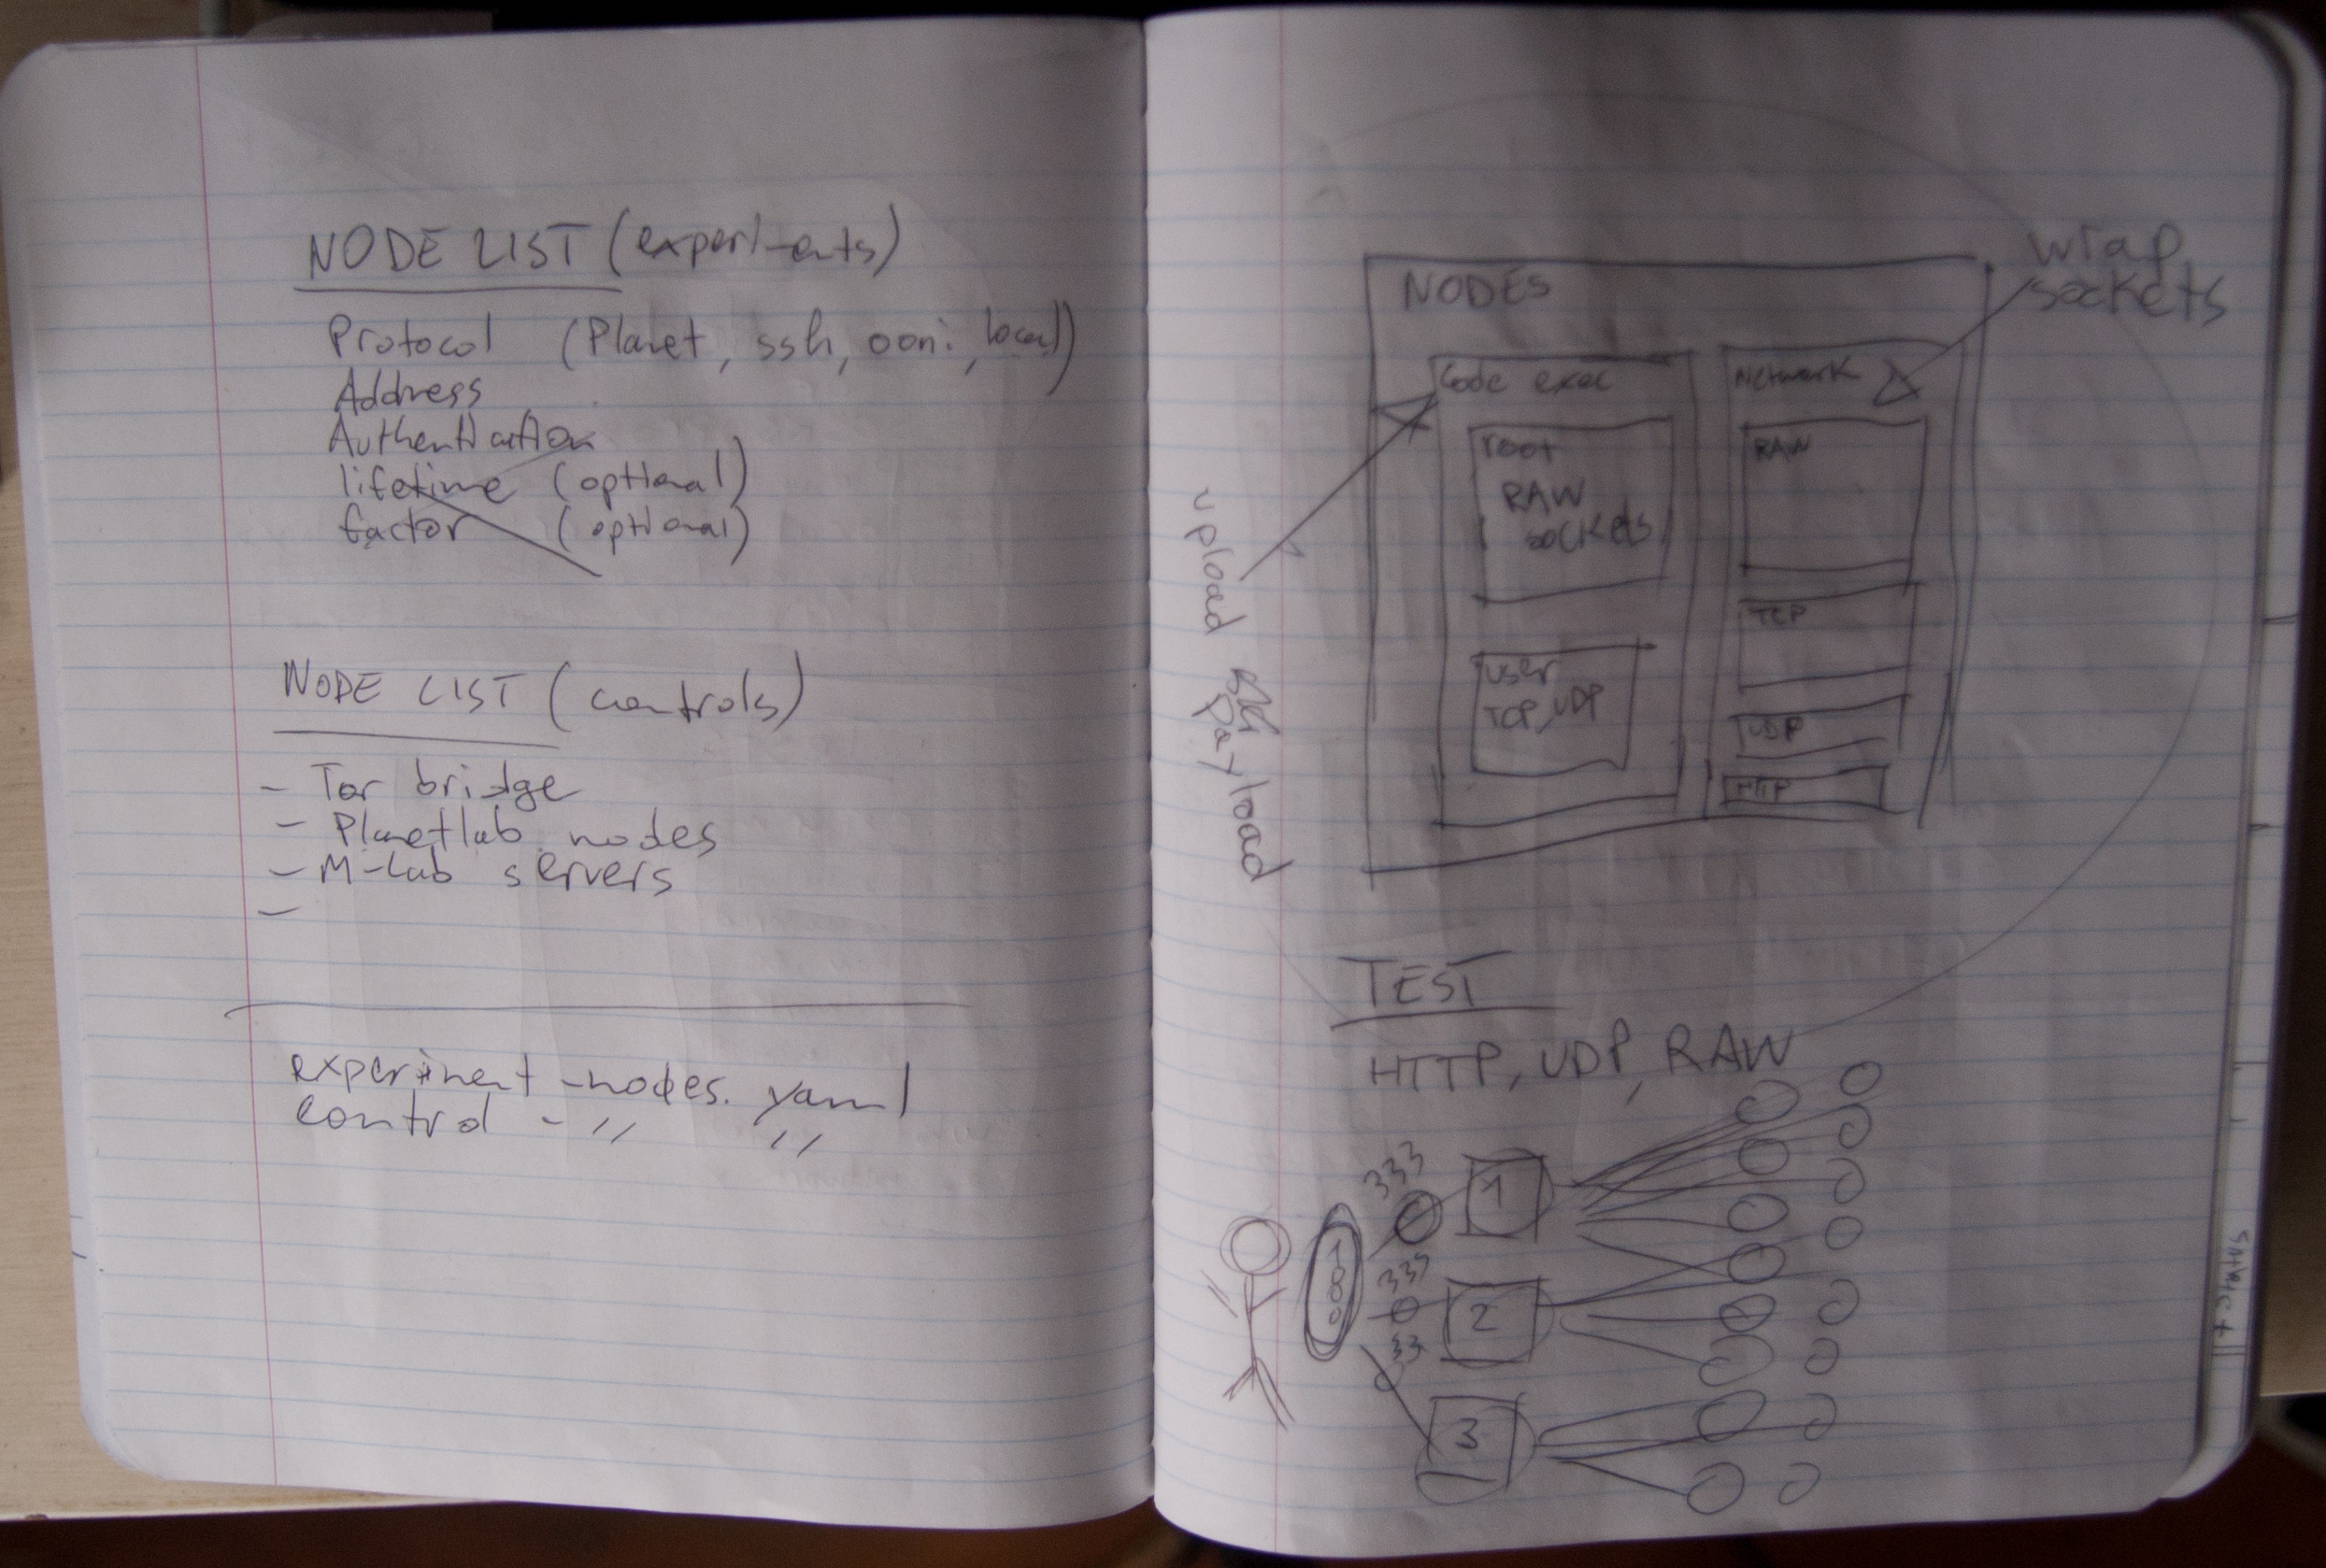 NODE LIST (experiments)
Protocol (Planet, ssh, ooni, local)
Address
Authentication
lifetime (optional)
factor (optional)
NODE LIST (controls)
- Tor bridge
- Planetlab nodes
- M-Lab servers
-
experiment-nodes.yaml
control - " "
wrap
sockets
NODES
Code exec
root
RAW
sockets
user
TCP, UDP
Network
RAW
TCP
UDP
HTTP
upload
payload
TEST
HTTP, UDP, RAW
333
1
2
33
3